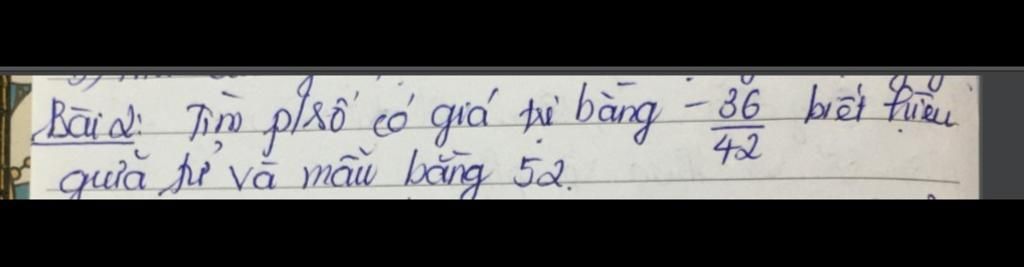 Bài 2: Tìm p/số có giá trị bằng -36/42 biết hiệu
giữa tử và mẫu bằng 52.